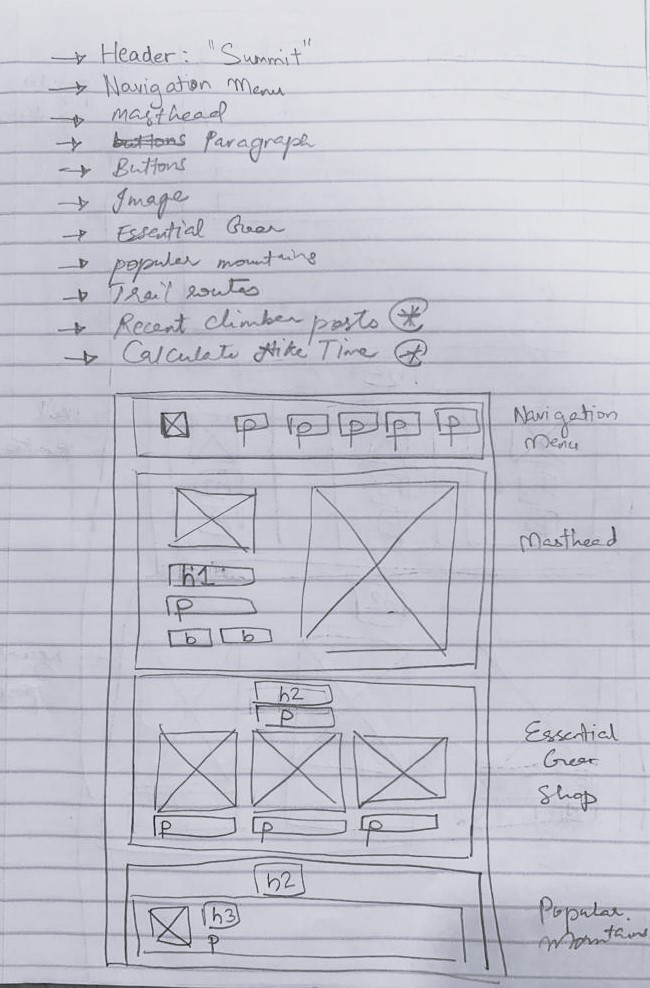 → Header: "Summit"
→ Navigation Menu
→ Masthead
→ buttons Paragraph
→ Buttons
→ Image
→ Essential Gear
→ popular mountains
→ Trail routes
→ Recent climber posts *
→ Calculate Hike Time *
p p p p p
Navigation
Menu
Masthead
h1
p
b b
h2
p
Essential
Gear
Shop
p p p
h2
h3
p
Popular
Mountains